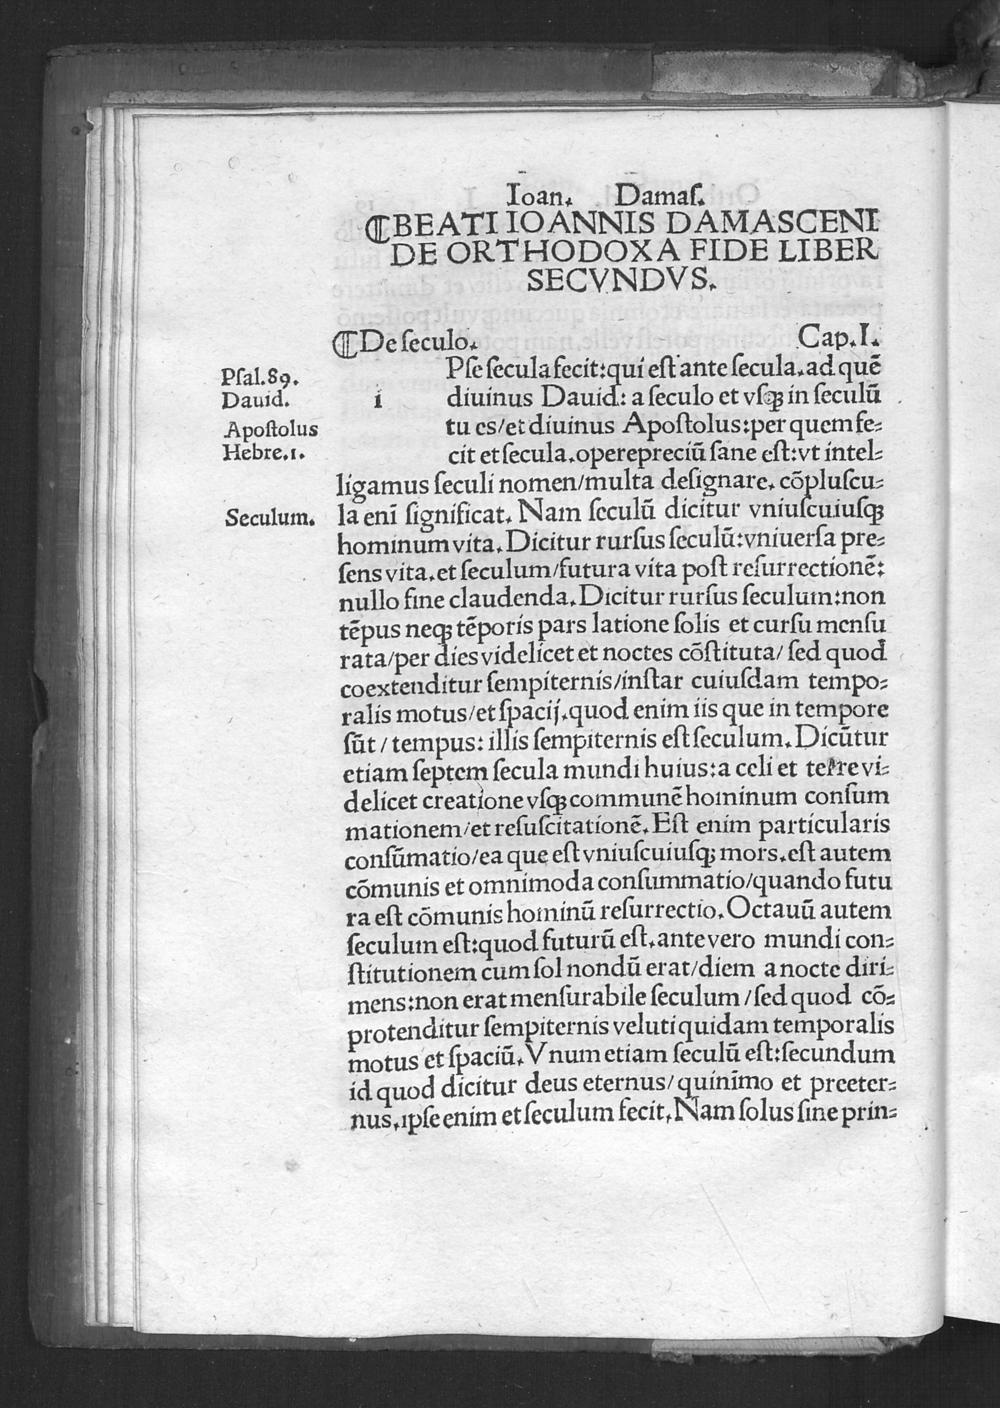 Ioan. Damaſ.
⸿BEATI IOANNIS DAMASCENI
DE ORTHODOXA FIDE LIBER
SECVNDVS.
⸿De ſeculo. Cap.I.
Pſal.89.
Dauid.
Apoſtolus
Hebre.1.
Seculum.
i
Pſe ſecula fecit:qui eſt ante ſecula.ad quē
diuinus Dauid: a ſeculo et vſqꝫ in ſeculū
tu es/et diuinus Apoſtolus:per quem fe-
cit et ſecula.operepreciū ſane eſt:vt intel-
ligamus ſeculi nomen/multa deſignare. cōpluſcu-
la enī ſignificat. Nam ſeculū dicitur vniuſcuiuſqꝫ
hominum vita. Dicitur rurſus ſeculū:vniuerſa pre-
ſens vita.et ſeculum/futura vita poſt reſurrectionē:
nullo fine claudenda. Dicitur rurſus ſeculum:non
tēpus neqꝫ tēporis pars latione ſolis et curſu menſu
rata/per dies videlicet et noctes cōſtituta/ ſed quod
coextenditur ſempiternis/inſtar cuiuſdam tempo-
ralis motus/et ſpacij.quod enim iis que in tempore
ſūt / tempus: illis ſempiternis eſt ſeculum. Dicūtur
etiam ſeptem ſecula mundi huius:a celi et terre vi-
delicet creatione vſqꝫ communē hominum conſum
mationem/et reſuſcitationē. Eſt enim particularis
conſūmatio/ea que eſt vniuſcuiuſqꝫ mors.eſt autem
cōmunis et omnimoda conſummatio/quando futu
ra eſt cōmunis hominū reſurrectio. Octauū autem
ſeculum eſt:quod futurū eſt.ante vero mundi con-
ſtitutionem cum ſol nondū erat/diem a nocte diri-
mens:non erat menſurabile ſeculum /ſed quod cō-
protenditur ſempiternis veluti quidam temporalis
motus et ſpaciū. Vnum etiam ſeculū eſt:ſecundum
id quod dicitur deus eternus/ quinīmo et preeter-
nus.ipſe enim et ſeculum fecit. Nam ſolus ſine prin-